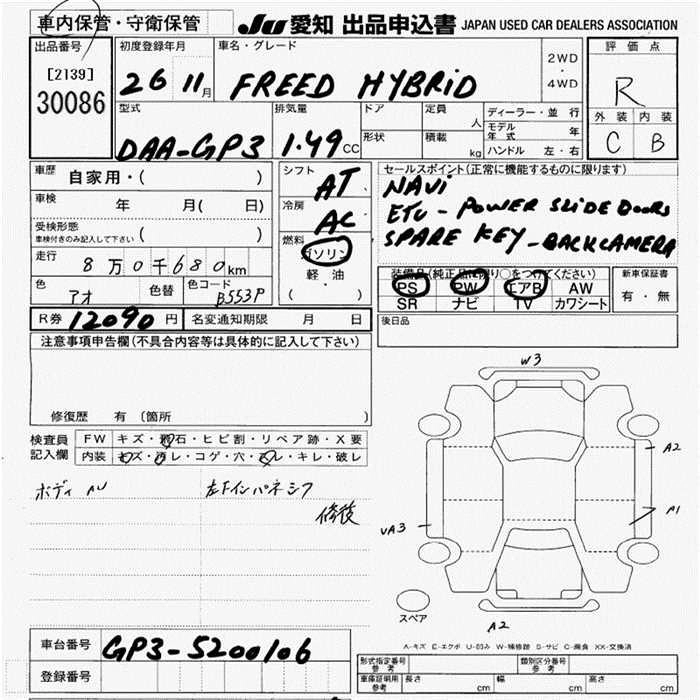 車内保管・守衛保管
JU 愛知 出品申込書 JAPAN USED CAR DEALERS ASSOCIATION
出品番号
[2139]
30086
初度登録年月
26 11月
車名・グレード
FREED HYBRID
2WD
・
4WD
評価点
R
外装 内装
C B
型式
DAA-GP3
排気量
1.49 CC
ドア
形状
定員
人
積載
kg
ディーラー・並行
モデル年式 年
ハンドル 左・右
車歴
自家用・( )
車検
年 月( 日)
受検形態
車検付きのみ記入して下さい ( )
走行
8万0千680km
色
アオ
色替
色コード
B553P
シフト
AT
冷房
AC
燃料
ガソリン
軽油
( ・ )
セールスポイント(正常に機能するものに限ります)
NAVi
ETC - POWER SLIDE DOORS
SPARE KEY - BACKCAMERA
装備品(純正品に限り○をつけてください)
PS PW エアB AW
SR ナビ TV カワシート
新車保証書
有・無
R券 12090 円
名変通知期限 月 日
後日品
注意事項申告欄(不具合内容等は具体的に記入して下さい)
修復歴 有 (箇所 )
検査員記入欄
FW キズ・飛石・ヒビ割・リペア跡・X要
内装 キズ・汚レ・コゲ・穴・スレ・キレ・破レ
ボディ AU
左下インパネシフ
修後
W3
A2
A1
UA3
A2
スペア
A-キズ E-エクボ U-凹み W-補修跡 S-サビ C-腐食 XX-交換済
車台番号
GP3-5200106
登録番号
形式指定番号 参考
類別区分番号 参考
車庫証明用 参考 長さ cm 幅 cm 高さ cm